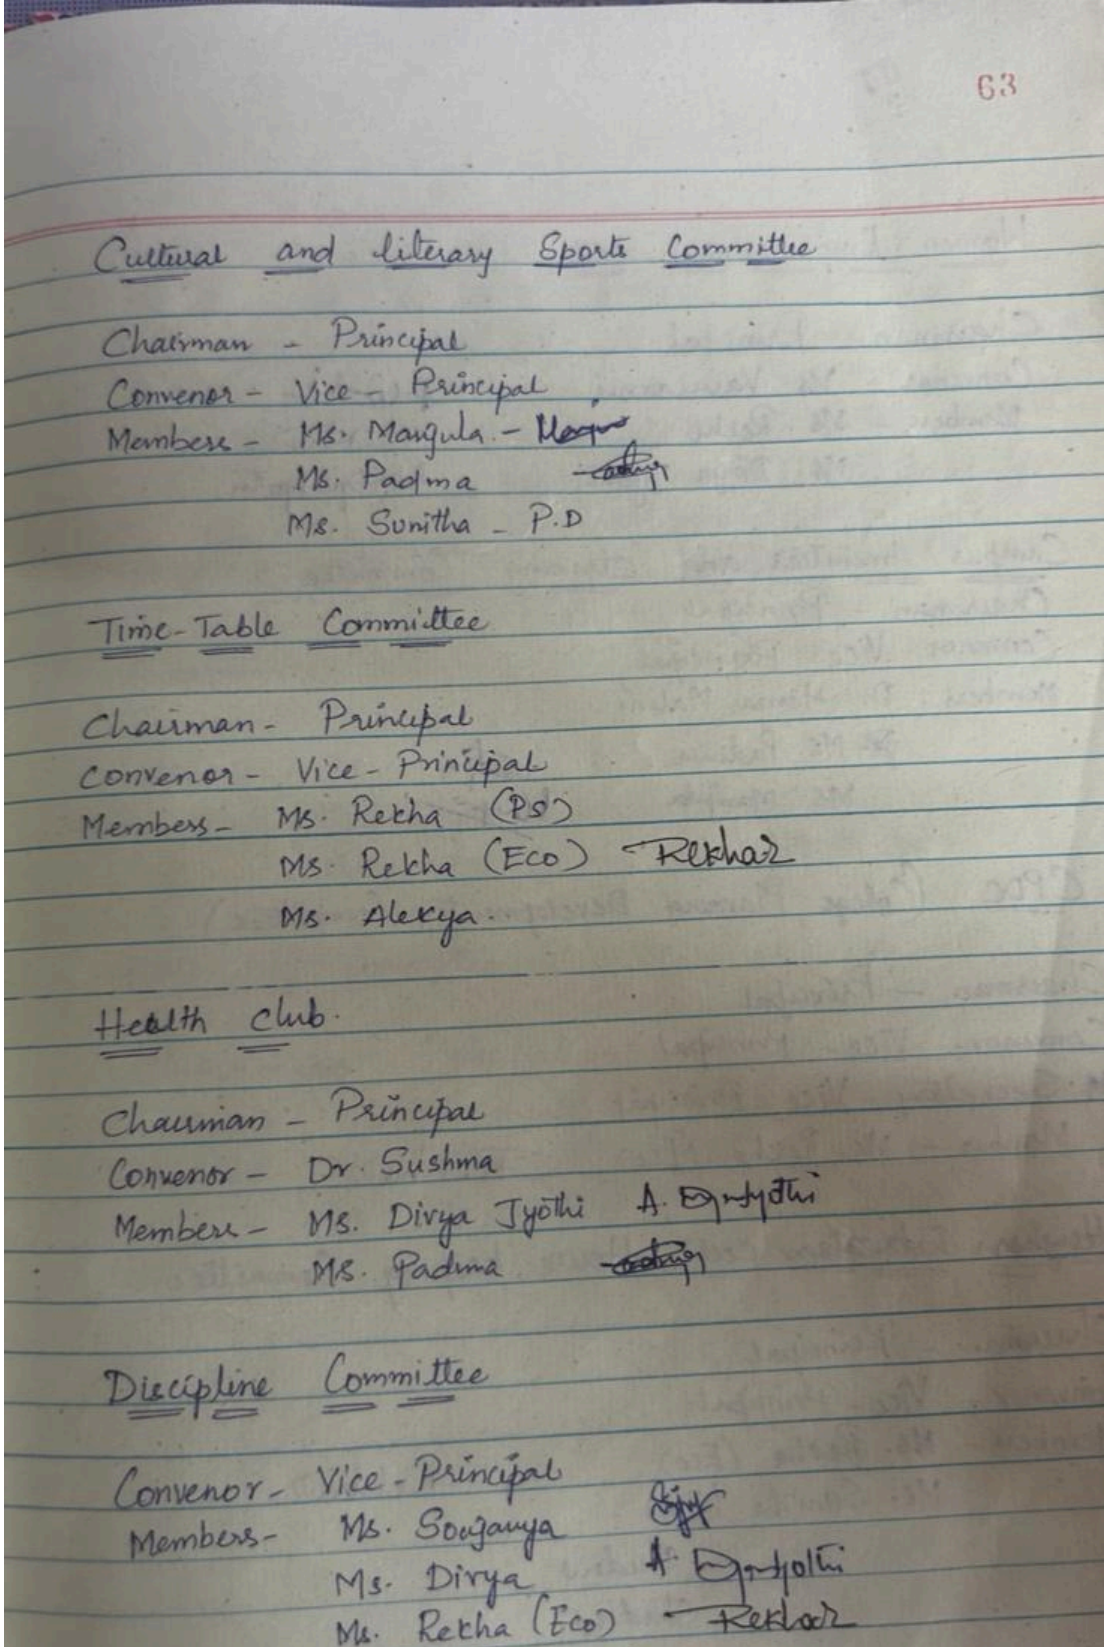 63
Cultural and literary Sports Committee
Chairman - Principal
Convenor - Vice - Principal
Members - Ms. Mangula. -
Ms. Padma
Ms. Sunitha - P.D
Time-Table Committee
Chairman - Principal
Convenor - Vice - Principal
Members - Ms. Rekha (PS)
Ms. Rekha (Eco) Rekha
Ms. Alekya.
Health club.
Chairman - Principal
Convenor - Dr. Sushma
Members - Ms. Divya Jyothi A.
Ms. Padma
Discipline Committee
Convenor - Vice - Principal
Members - Ms. Sowjanya
Ms. Divya A.
Ms. Rekha (Eco) Rekha